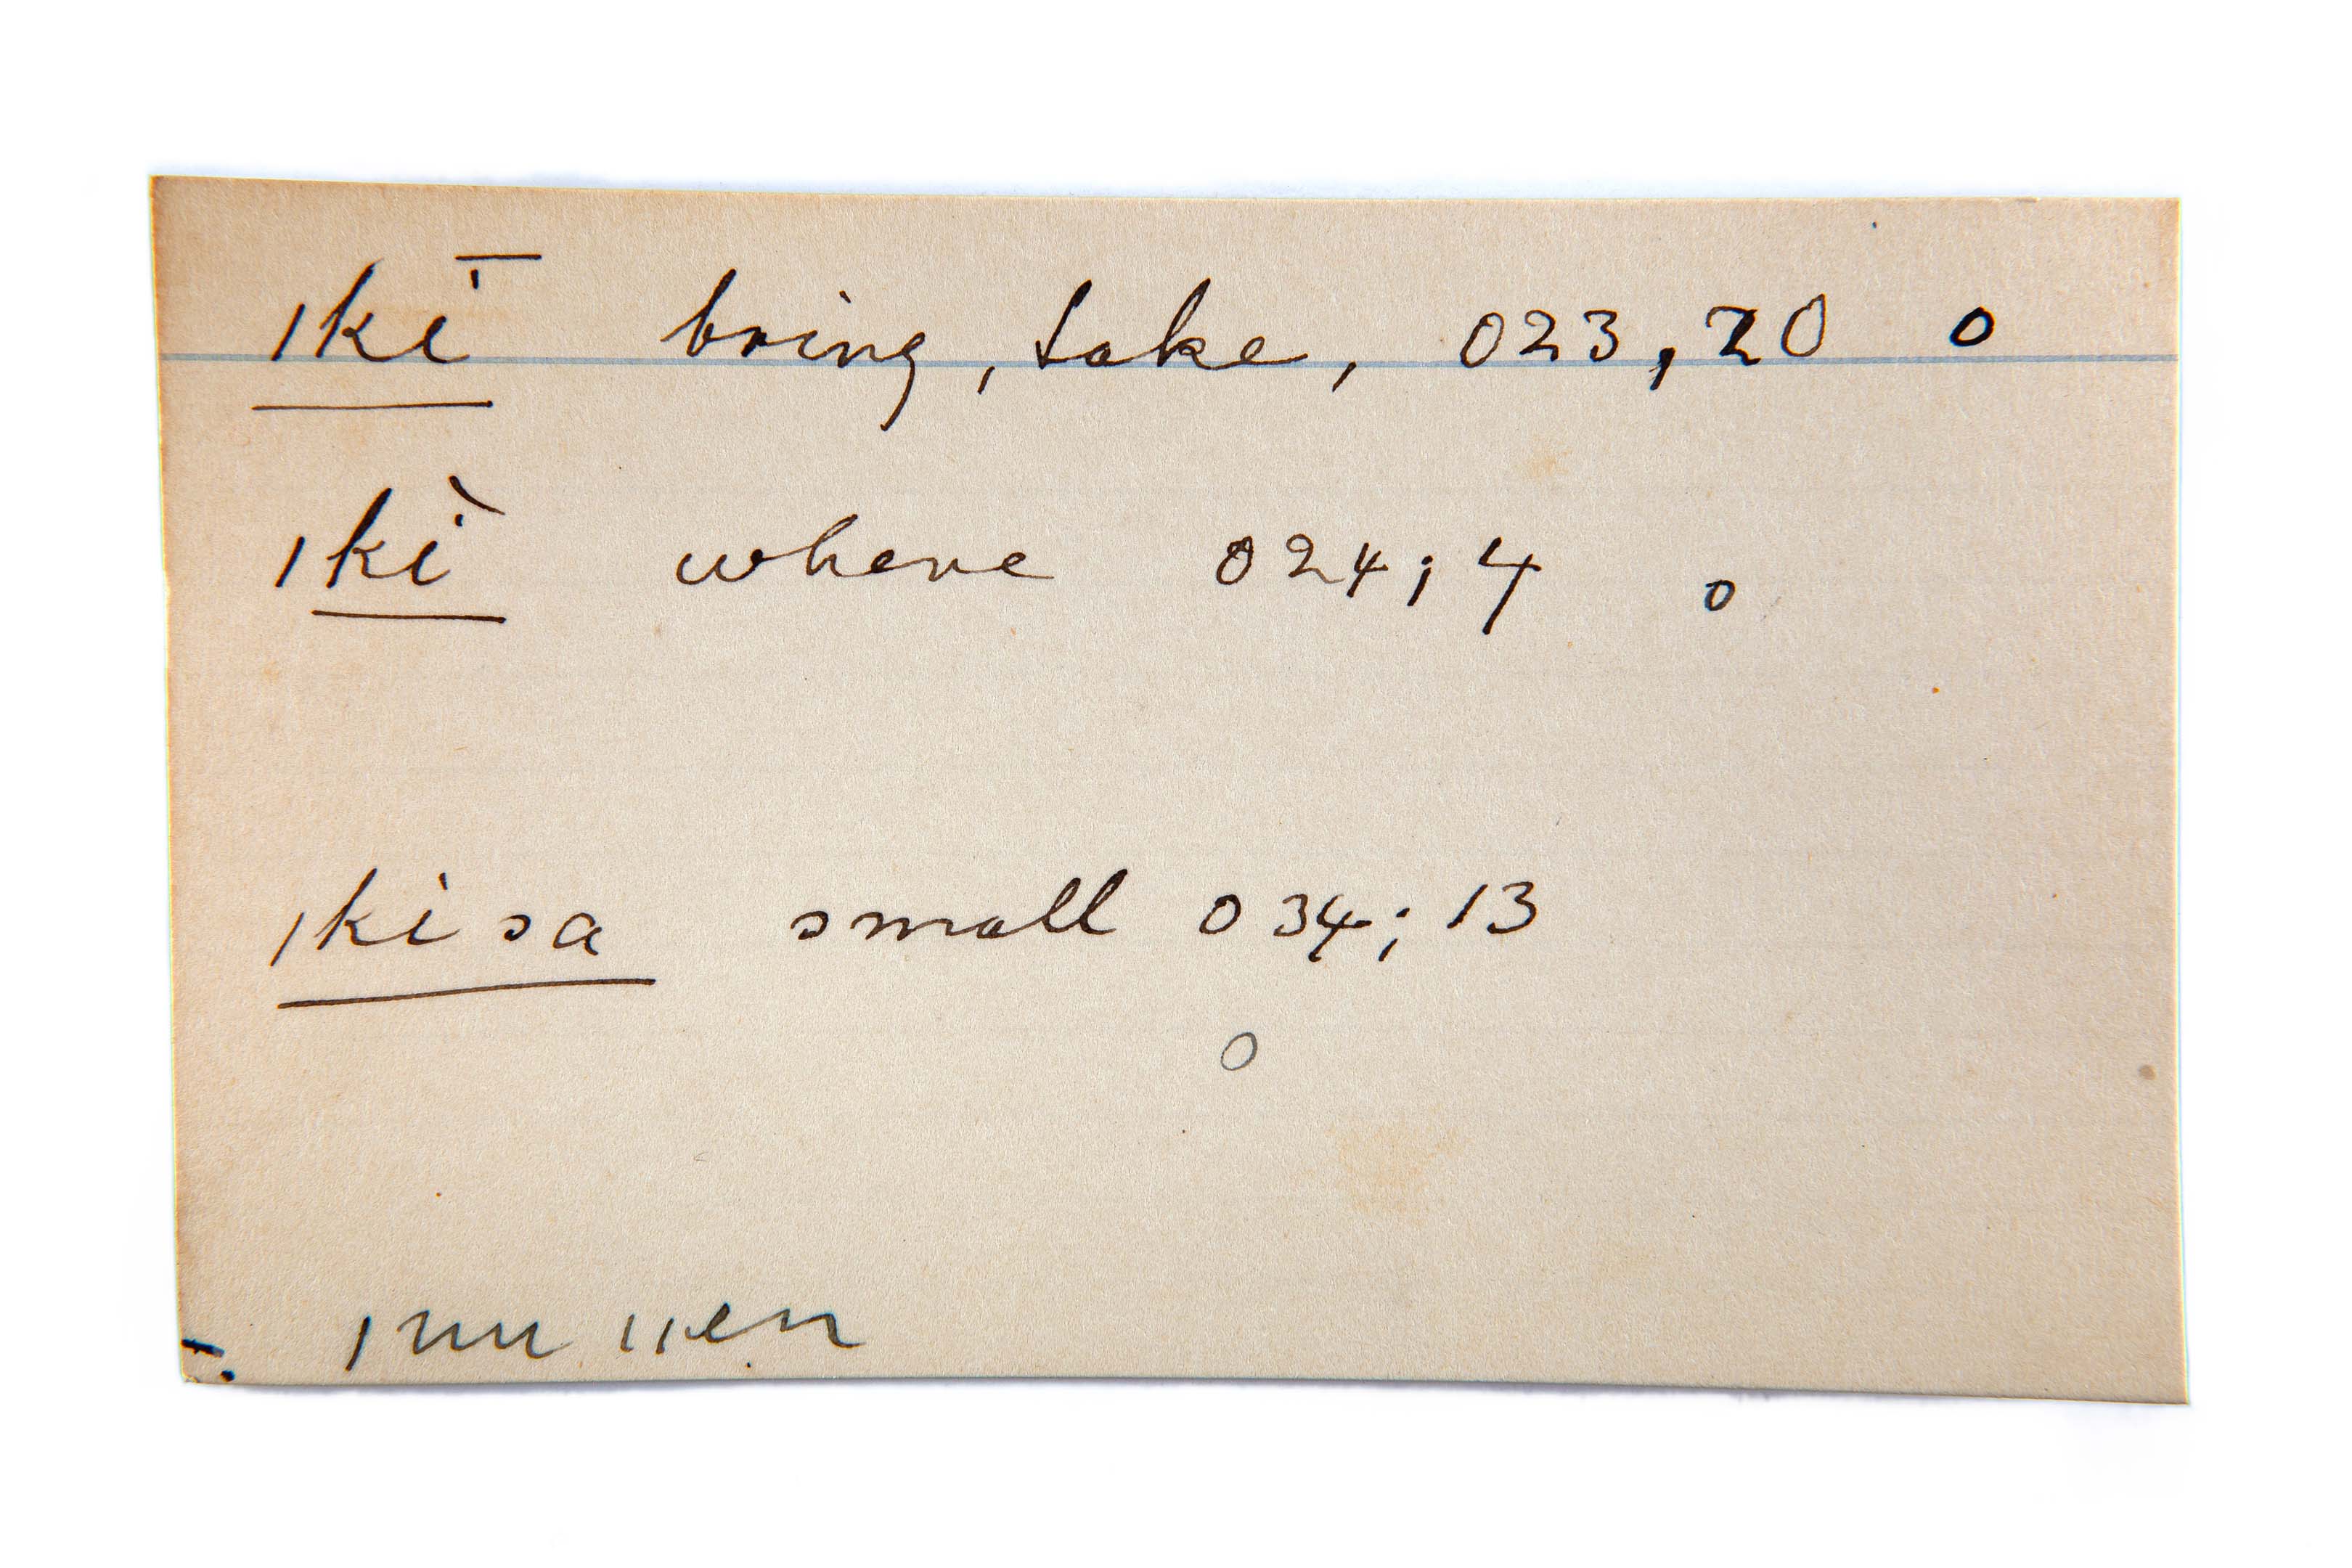 ıkī bring, take, 023, 20 o
ıkì where 024; 4 o
ıkisa small 034; 13
o